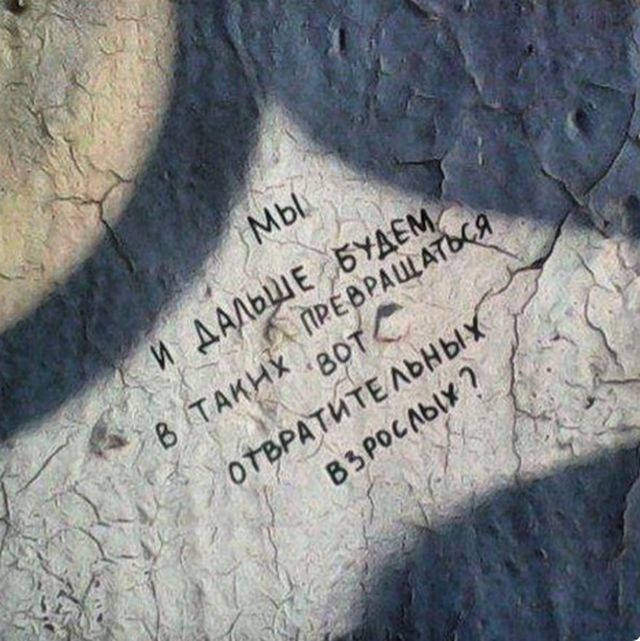 МЫ
И ДАЛЬШЕ БУДЕМ
ПРЕВРАЩАТЬСЯ
В ТАКИХ ВОТ
ОТВРАТИТЕЛЬНЫХ
ВЗРОСЛЫХ?